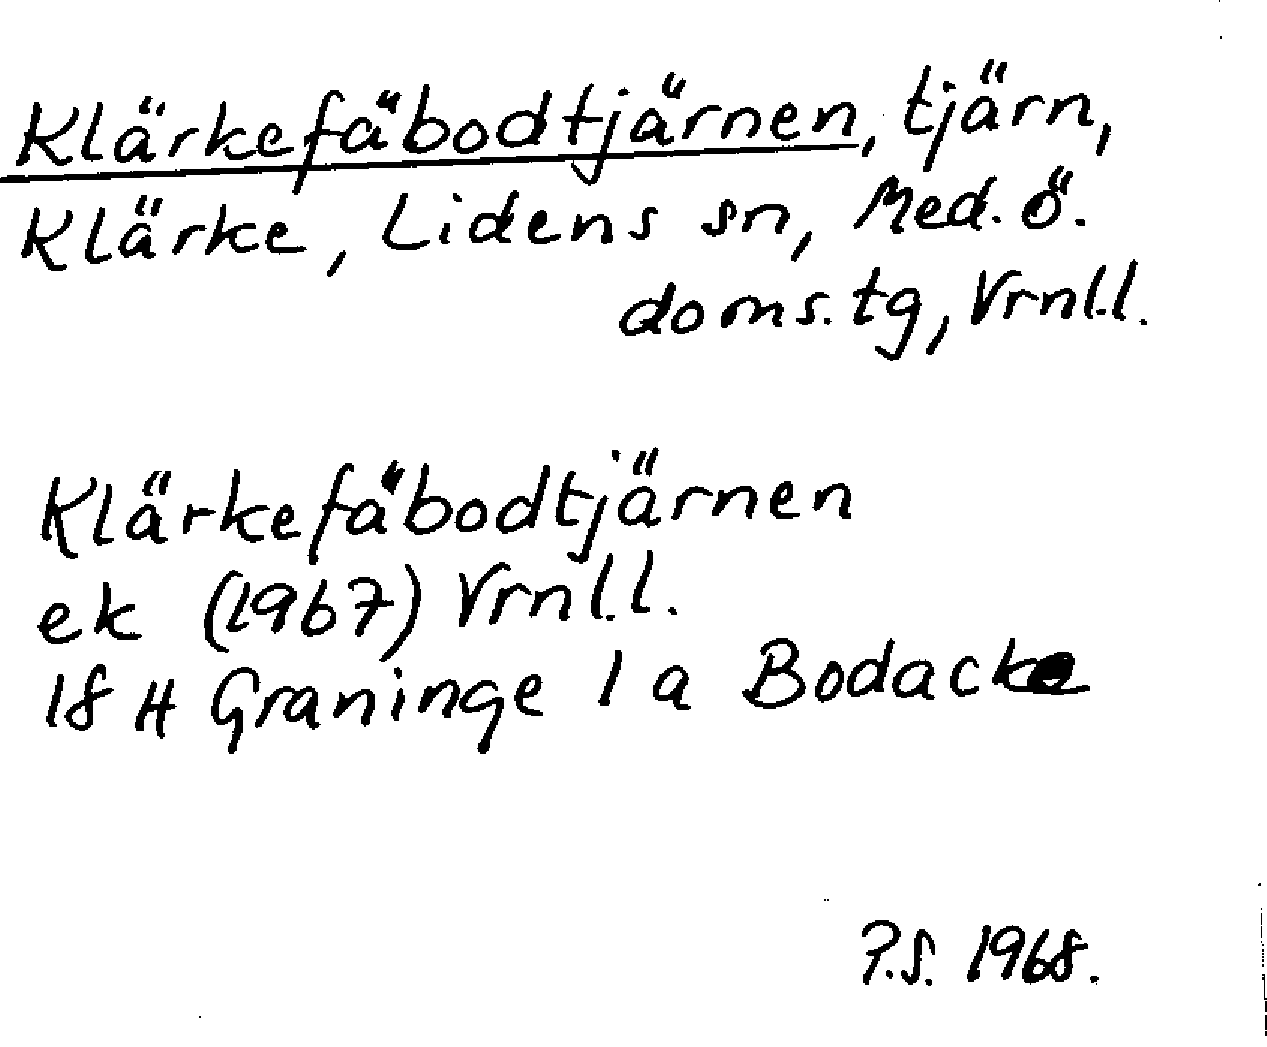 Klärkefäbodtjärnen, tjärn,
Klärke, Lidens sn, Med. ö.
doms. tg, Vrnl.l.
Klärkefäbodtjärnen
ek (1967) Vrnl.l.
18 H Graninge 1 a Bodacke
P.S. 1968.